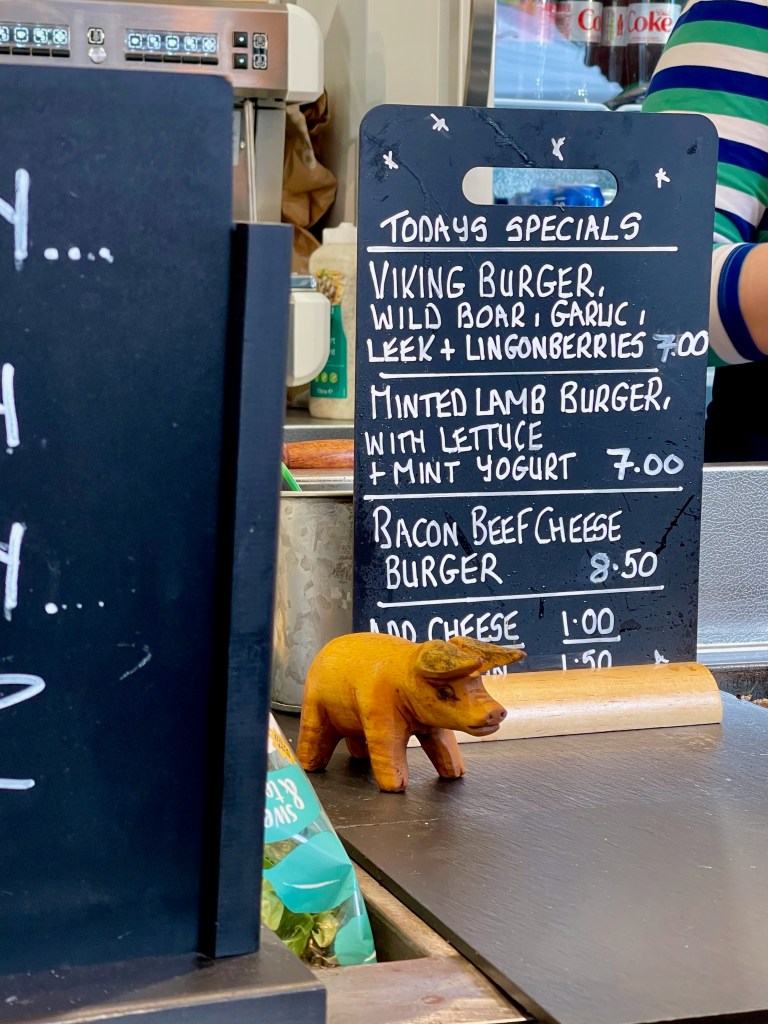 Coke
TODAYS SPECIALS
VIKING BURGER,
WILD BOAR, GARLIC,
LEEK + LINGONBERRIES 7.00
MINTED LAMB BURGER,
WITH LETTUCE
+ MINT YOGURT 7.00
BACON BEEF CHEESE
BURGER 8.50
ADD CHEESE 1.00
1.50